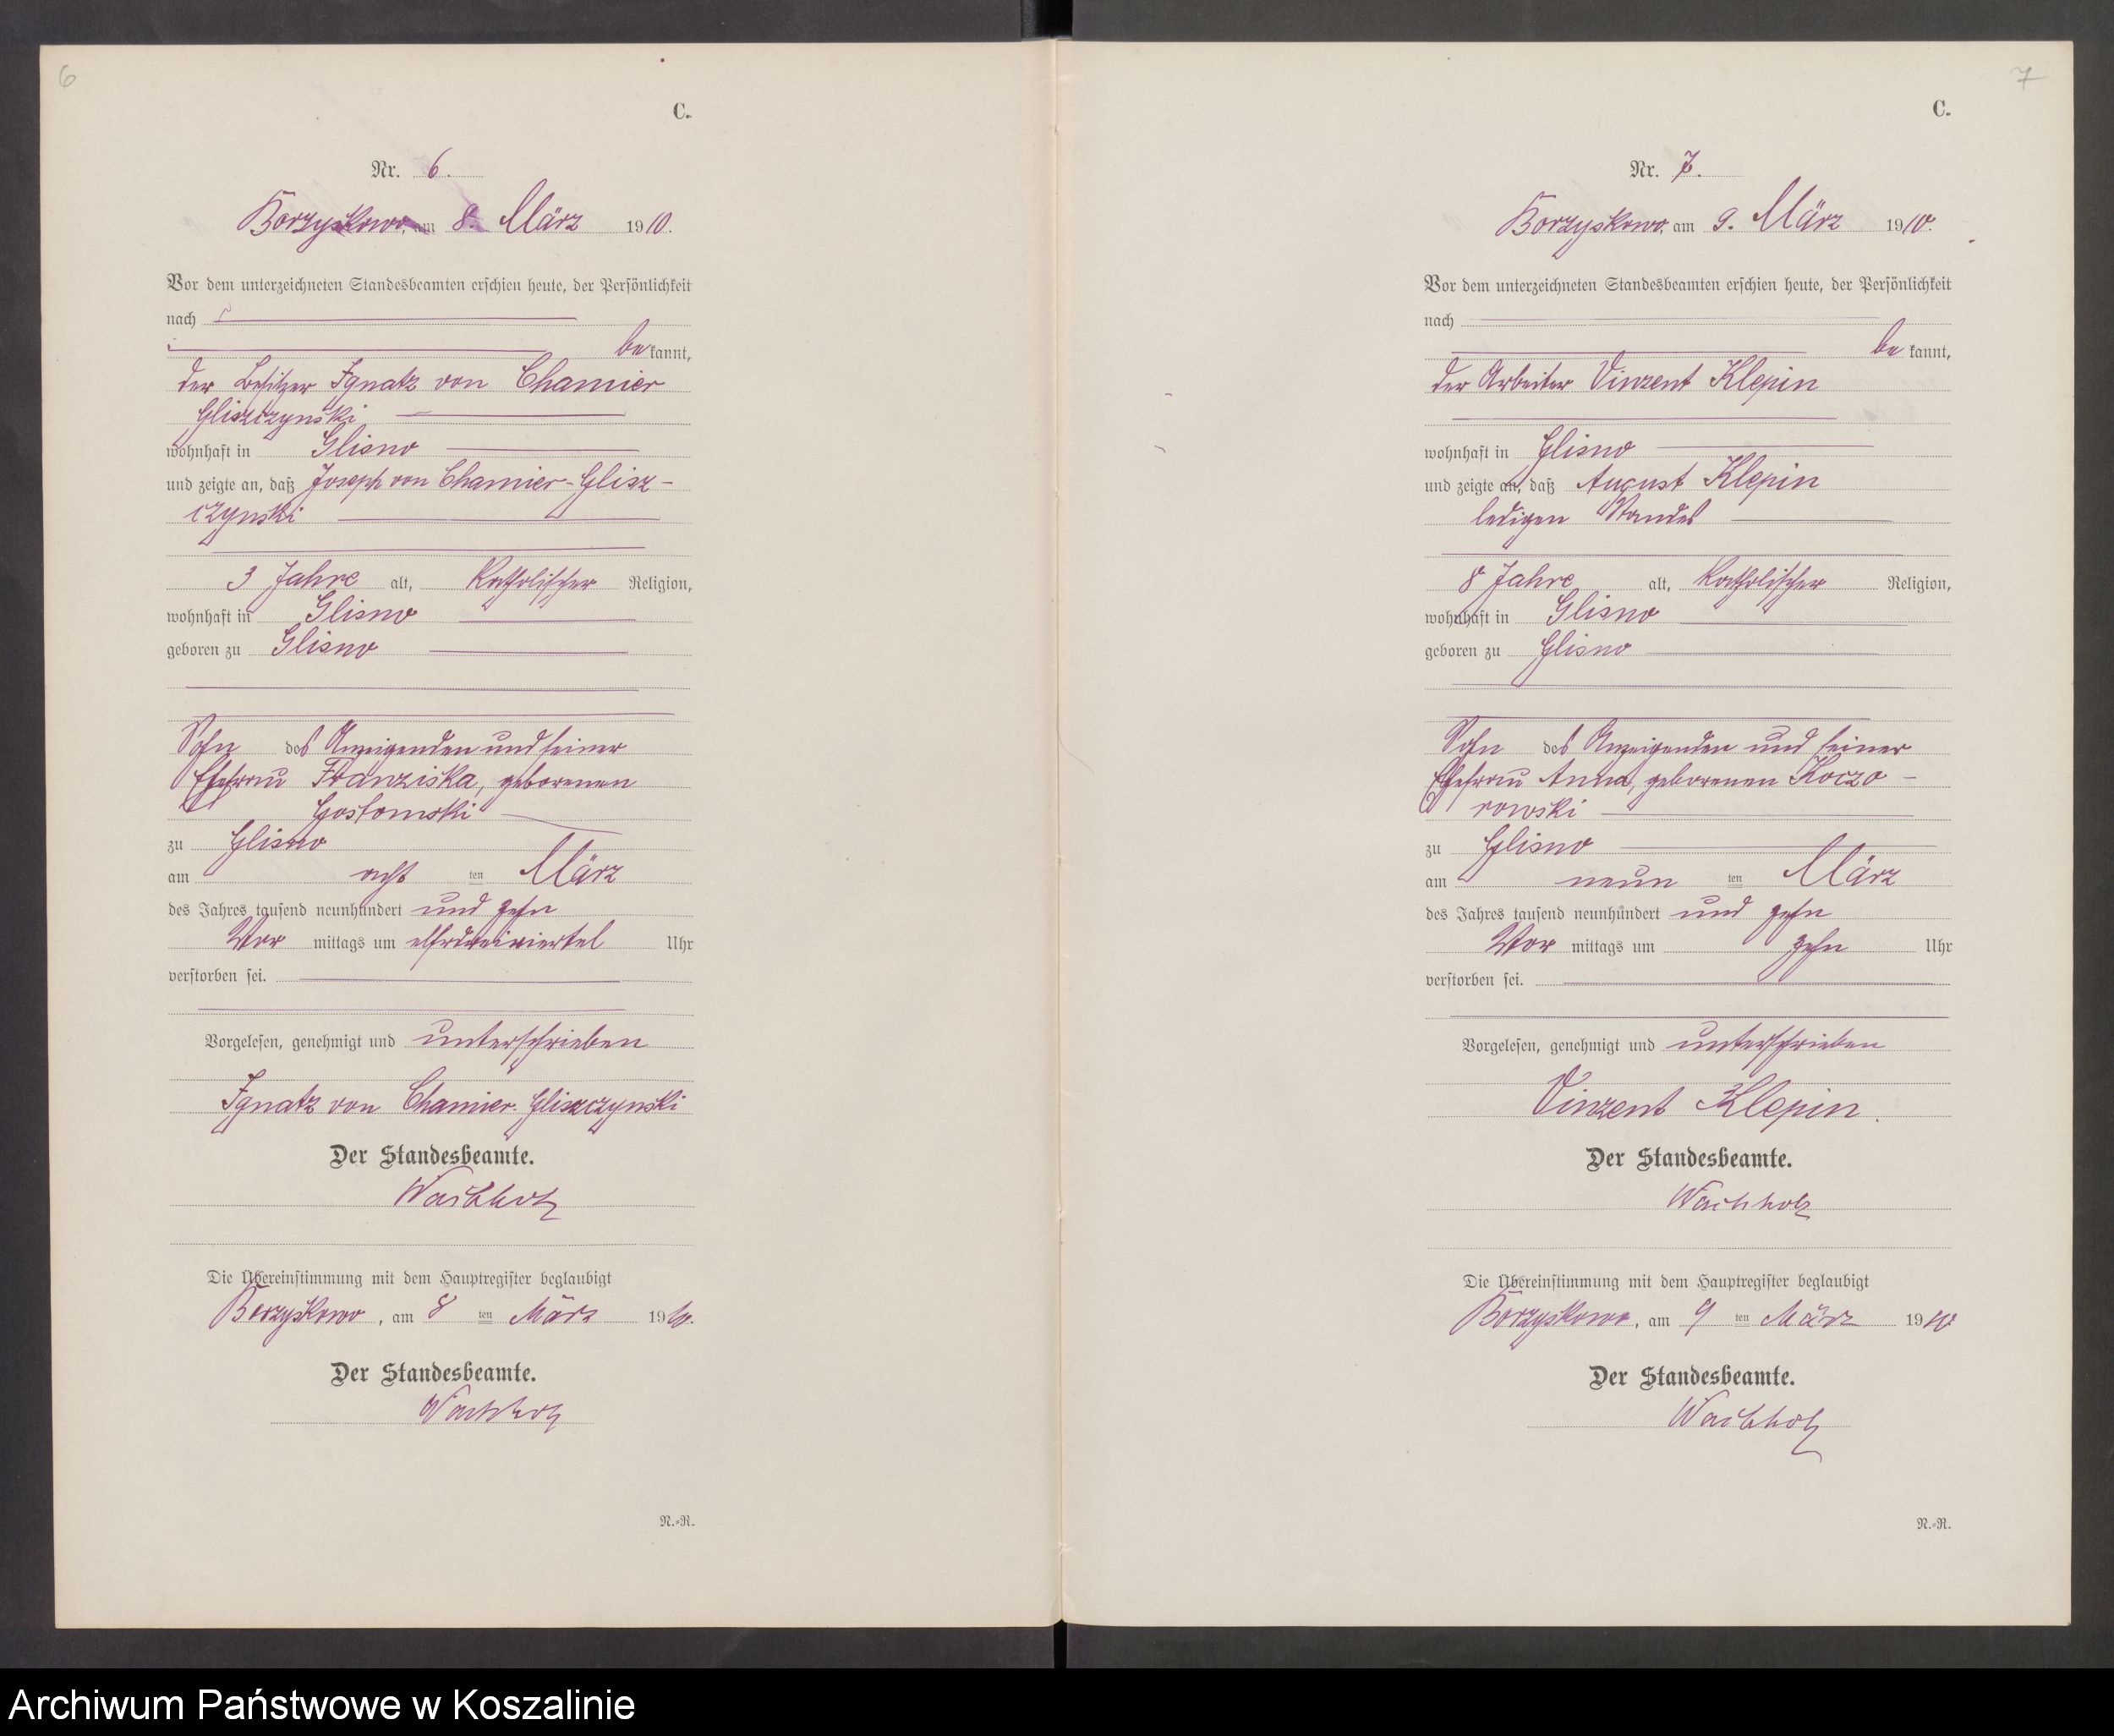 6
C.
Nr. 6.
Borzyskowo, am 8. März 1910.
Vor dem unterzeichneten Standesbeamten erschien heute, der Persönlichkeit
nach
bekannt,
der Besitzer Ignatz von Chamier
Gliszczynski
wohnhaft in Glisno
und zeigte an, daß Joseph von Chamier-Glisz-
czynski
3 Jahre alt, katholischer Religion,
wohnhaft in Glisno
geboren zu Glisno
Sohn des Anzeigenden und seiner
Ehefrau Franziska, geborenen
Gostomski
zu Glisno
am acht ten März
des Jahres tausend neunhundert und zehn
Vor mittags um elfdreiviertel Uhr
verstorben sei.
Vorgelesen, genehmigt und unterschrieben
Ignatz von Chamier-Gliszczynski
Der Standesbeamte.
Wachholz
Die Übereinstimmung mit dem Hauptregister beglaubigt
Borzyskowo, am 8 ten März 1910.
Der Standesbeamte.
Wachholz
N.-R.
7
C.
Nr. 7.
Borzyskowo, am 9. März 1910.
Vor dem unterzeichneten Standesbeamten erschien heute, der Persönlichkeit
nach
bekannt,
der Arbeiter Vinzent Klepin
wohnhaft in Glisno
und zeigte an, daß August Klepin
ledigen Standes
8 Jahre alt, katholischer Religion,
wohnhaft in Glisno
geboren zu Glisno
Sohn des Anzeigenden und seiner
Ehefrau Anna, geborenen Koczo-
rowski
zu Glisno
am neun ten März
des Jahres tausend neunhundert und zehn
Vor mittags um zehn Uhr
verstorben sei.
Vorgelesen, genehmigt und unterschrieben
Vinzent Klepin.
Der Standesbeamte.
Wachholz
Die Übereinstimmung mit dem Hauptregister beglaubigt
Borzyskowo, am 9 ten März 1910
Der Standesbeamte.
Wachholz
N.-R.
Archiwum Państwowe w Koszalinie